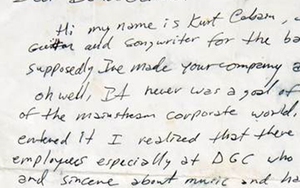 Hi my name is Kurt Cobain,
and songwriter for the ba
supposedly Ive made your company a
oh well, It never was a goal of
of the mainstream corporate world,
entered It I realized that there
employees especially at DGC who
and sincere about music and ha